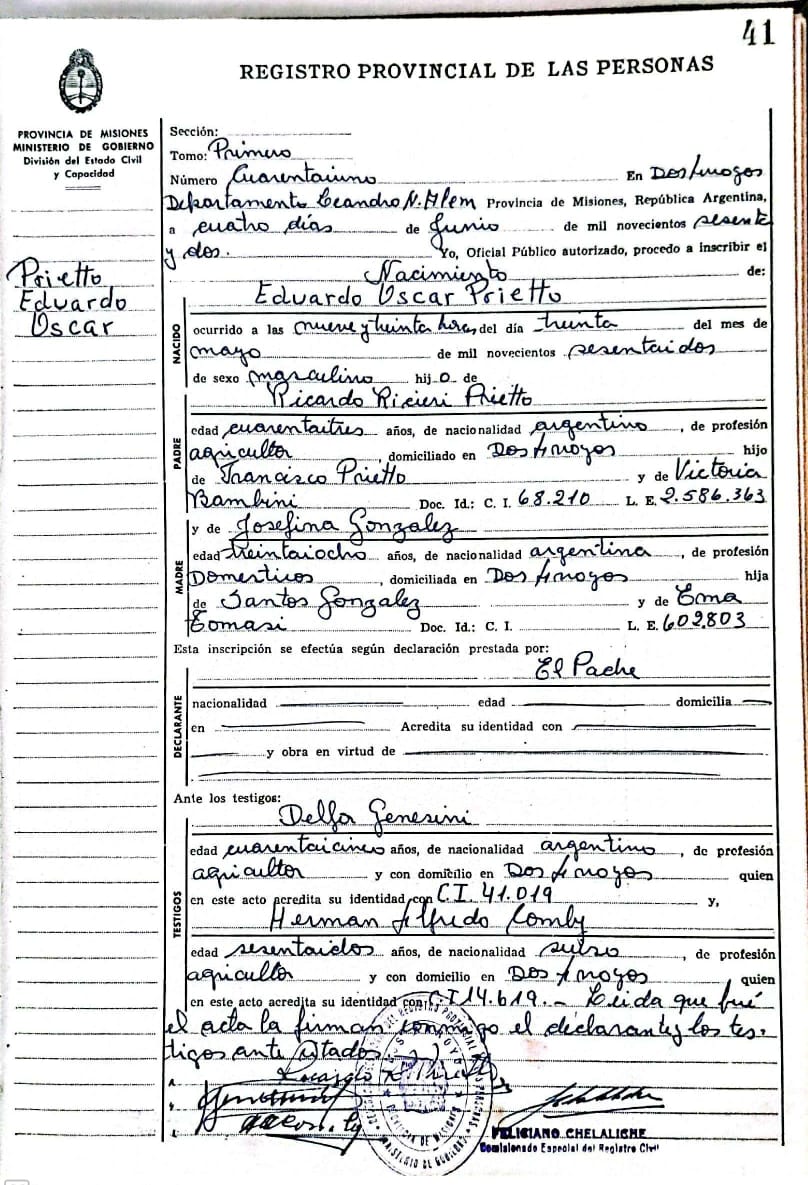 41
REGISTRO PROVINCIAL DE LAS PERSONAS
PROVINCIA DE MISIONES
MINISTERIO DE GOBIERNO
División del Estado Civil
y Capacidad
Prietto
Eduardo
Oscar
Sección:
Tomo: Primero
Número Cuarentaiuno En Dos Arroyos
Departamento Leandro N. Alem Provincia de Misiones, República Argentina,
a cuatro días de Junio de mil novecientos sesenta
y dos. Yo, Oficial Público autorizado, procedo a inscribir el
Nacimiento de:
Eduardo Oscar Prietto
NACIDO
ocurrido a las nueve y treinta horas del día treinta del mes de
mayo de mil novecientos sesentaidos
de sexo masculino hijo de
Ricardo Ricieri Prietto
PADRE
edad cuarentaitres años, de nacionalidad argentino, de profesión
agricultor, domiciliado en Dos Arroyos hijo
de Francisco Prietto y de Victoria
Bambini Doc. Id.: C. I. 68.210 L. E. 2.586.363
y de Josefina Gonzalez
MADRE
edad treintaiocho años, de nacionalidad argentina, de profesión
Domesticos, domiciliada en Dos Arroyos hija
de Santos Gonzalez y de Ema
Tomasi Doc. Id.: C. I. L. E. 602.803
Esta inscripción se efectúa según declaración prestada por:
El Padre
DECLARANTE
nacionalidad edad domicilia
en Acredita su identidad con
y obra en virtud de
Ante los testigos:
Delfa Genesini
TESTIGOS
edad cuarentaicinco años, de nacionalidad argentino, de profesión
agricultor y con domicilio en Dos Arroyos quien
en este acto acredita su identidad con C.I. 41.019 y,
Herman Alfredo Comby
edad sesentaidos años, de nacionalidad suiso, de profesión
agricultor y con domicilio en Dos Arroyos quien
en este acto acredita su identidad con C I 14.619.- Leida que fué
el acta la firman conmigo el declarante y los tes-
tigos ante citados
FELICIANO CHELALICHE
Comisionado Especial del Registro Civil